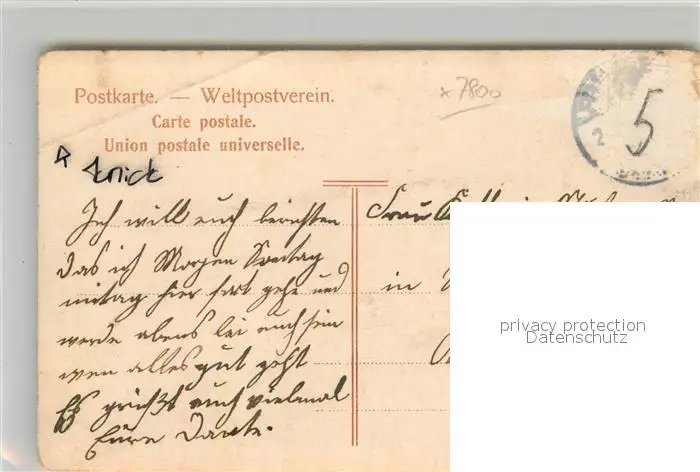 Postkarte. — Weltpostverein.
Carte postale.
Union postale universelle.
x 7800
2
5
Knick
Ich will euch berichten
das ich Morgen Sontag
mitag hier fort gehe und
werde abens bei euch sein
wen alles gut geht
Es grüßt euch vielmal
Eure Dante.
Frau
in
privacy protection
Datenschutz